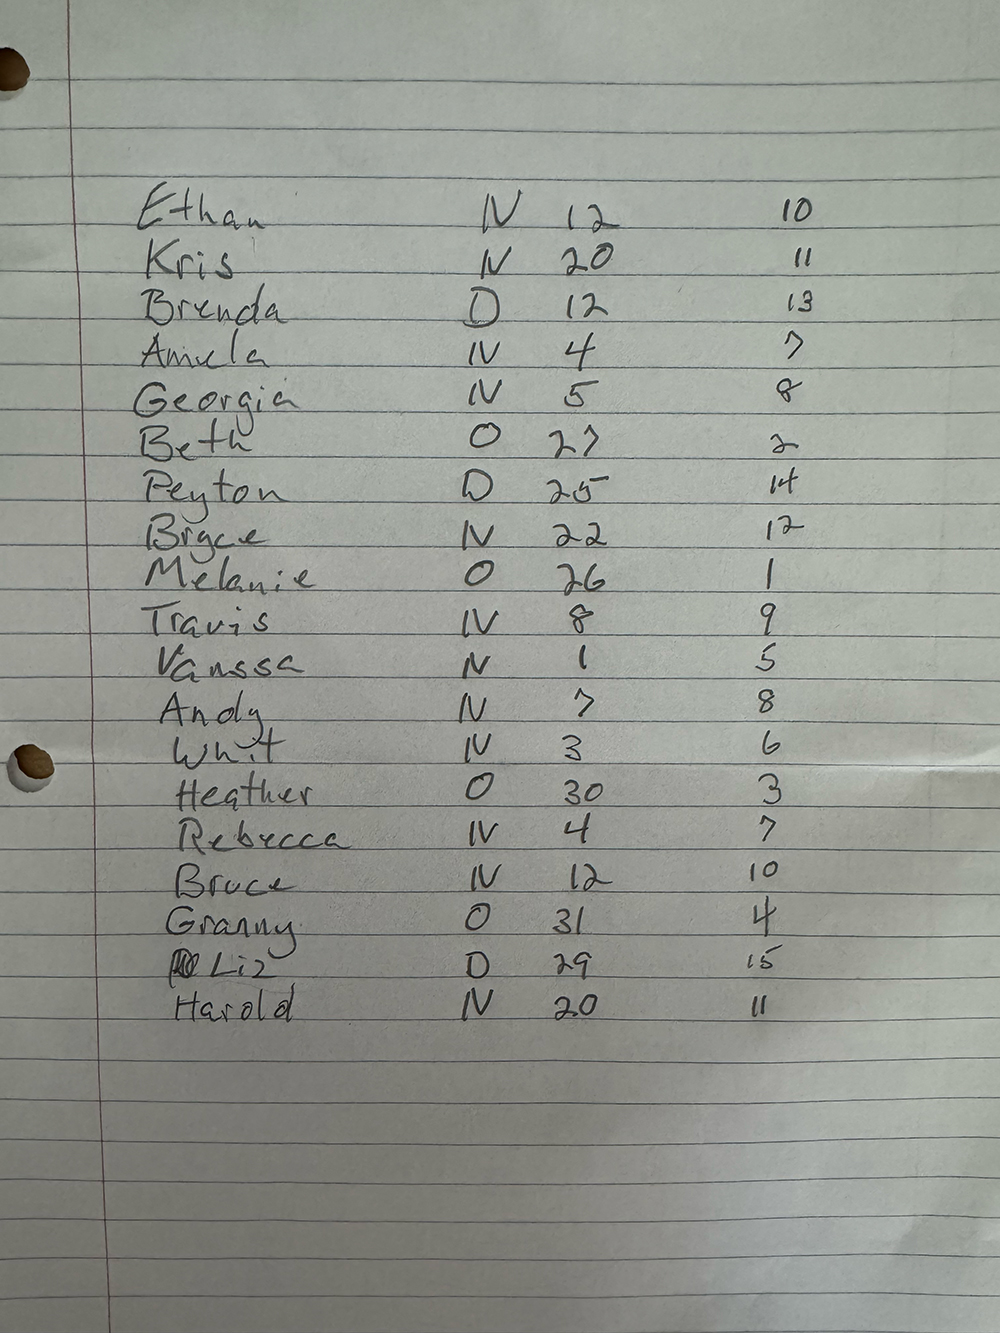 Ethan N 12 10
Kris N 20 11
Brenda D 12 13
Amela N 4 7
Georgia N 5 8
Beth O 27 2
Peyton D 25 14
Bryce N 22 12
Melanie O 26 1
Travis N 8 9
Vanssa N 1 5
Andy N 7 8
Whit N 3 6
Heather O 30 3
Rebecca N 4 7
Bruce N 12 10
Granny O 31 4
Liz D 29 15
Harold N 20 11